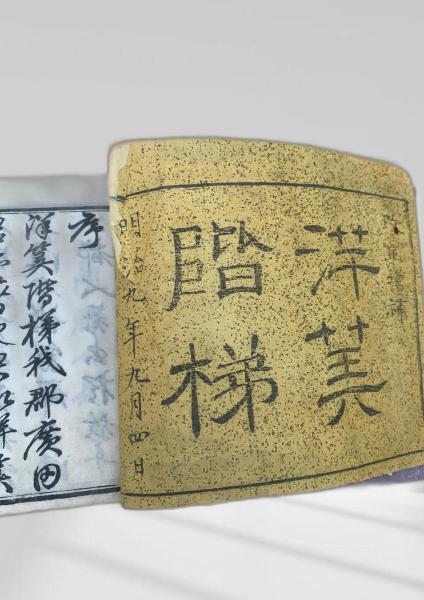 增補
洋筭
階梯
明治九年九月四日
序
洋筭階梯我郡廣田